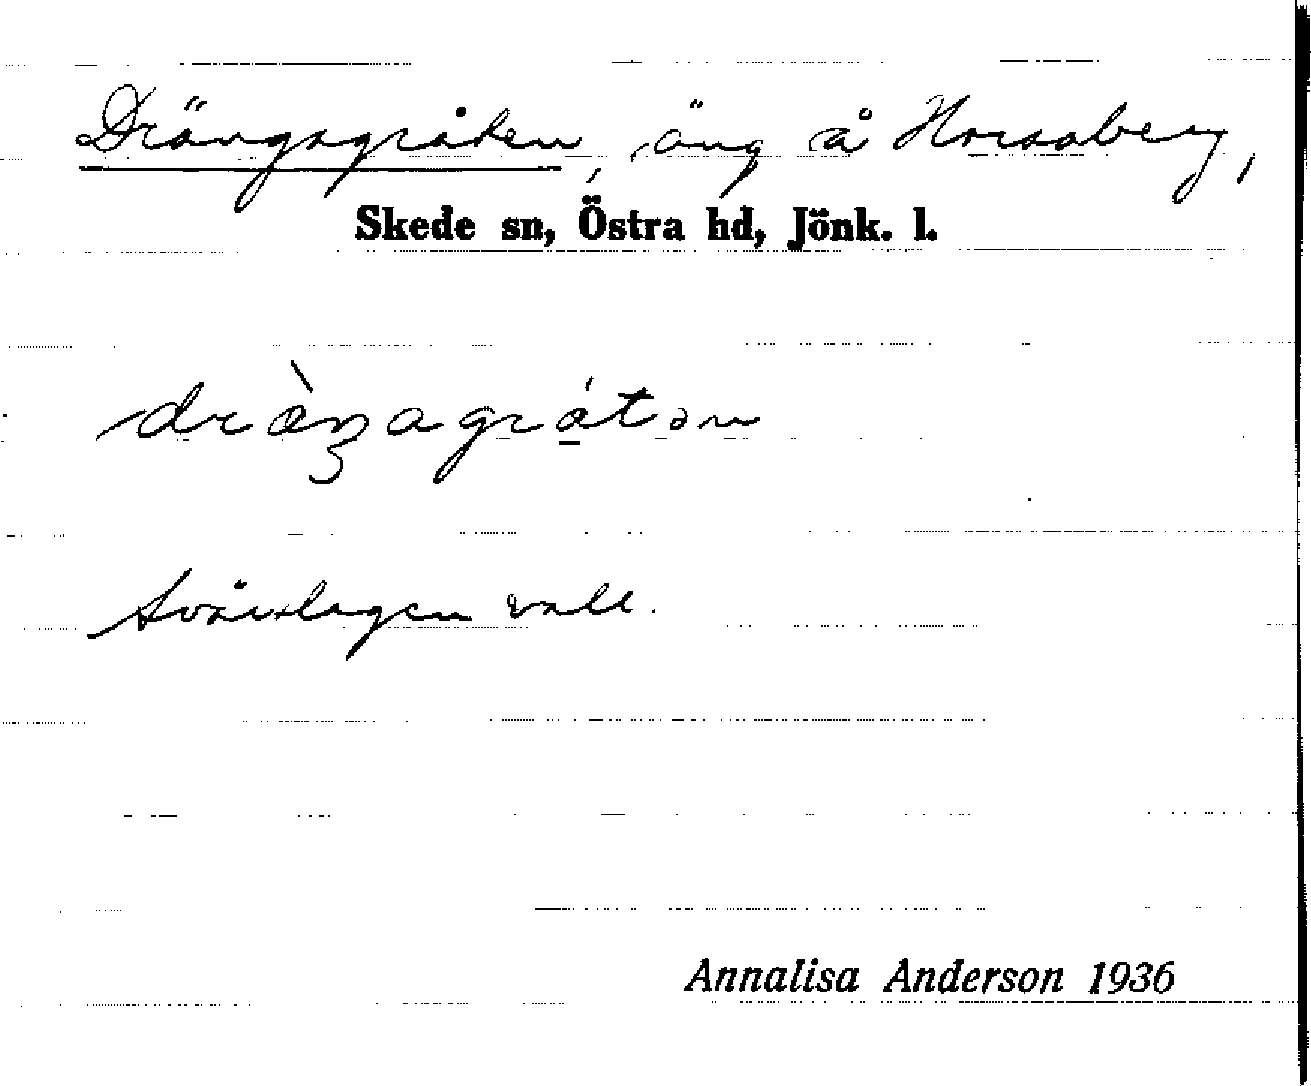 Drängagråten, äng å Horsaberg,
Skede sn, Östra hd, Jönk. l.
dræ̀ŋagrát
Svårslagen vall.
Annalisa Anderson 1936